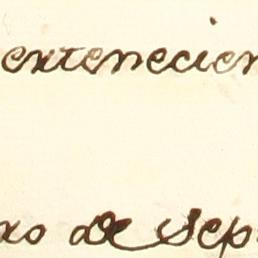 extenecien
xo de Sep